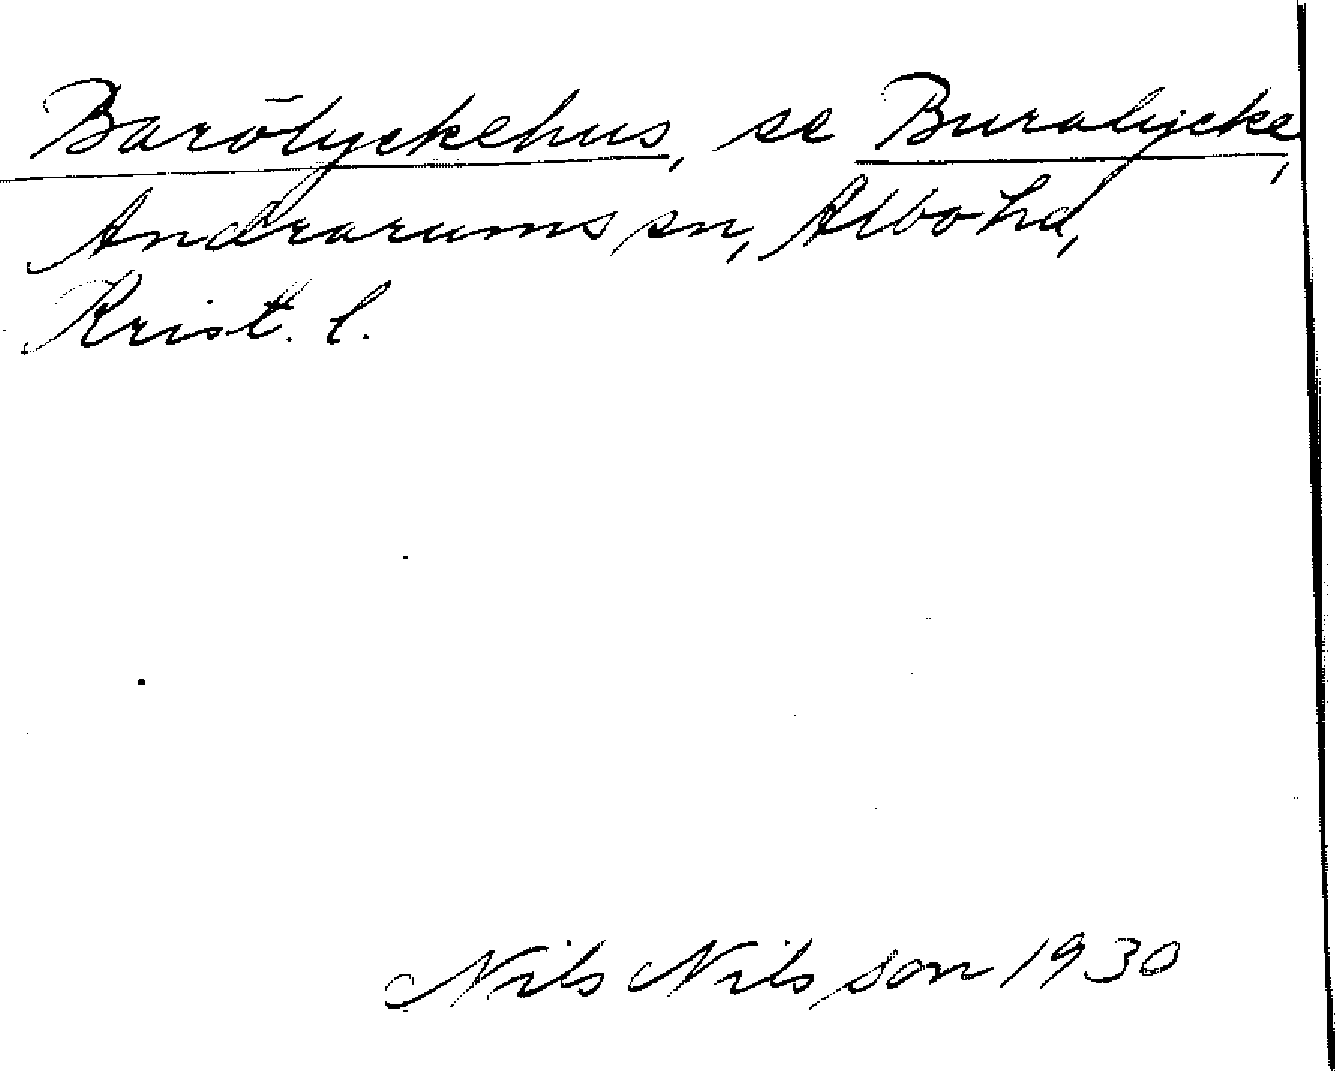 Barölyckehus, se Buralycke,
Andrarums sn, Albo hd,
Krist. l.
Nils Nilsson 1930